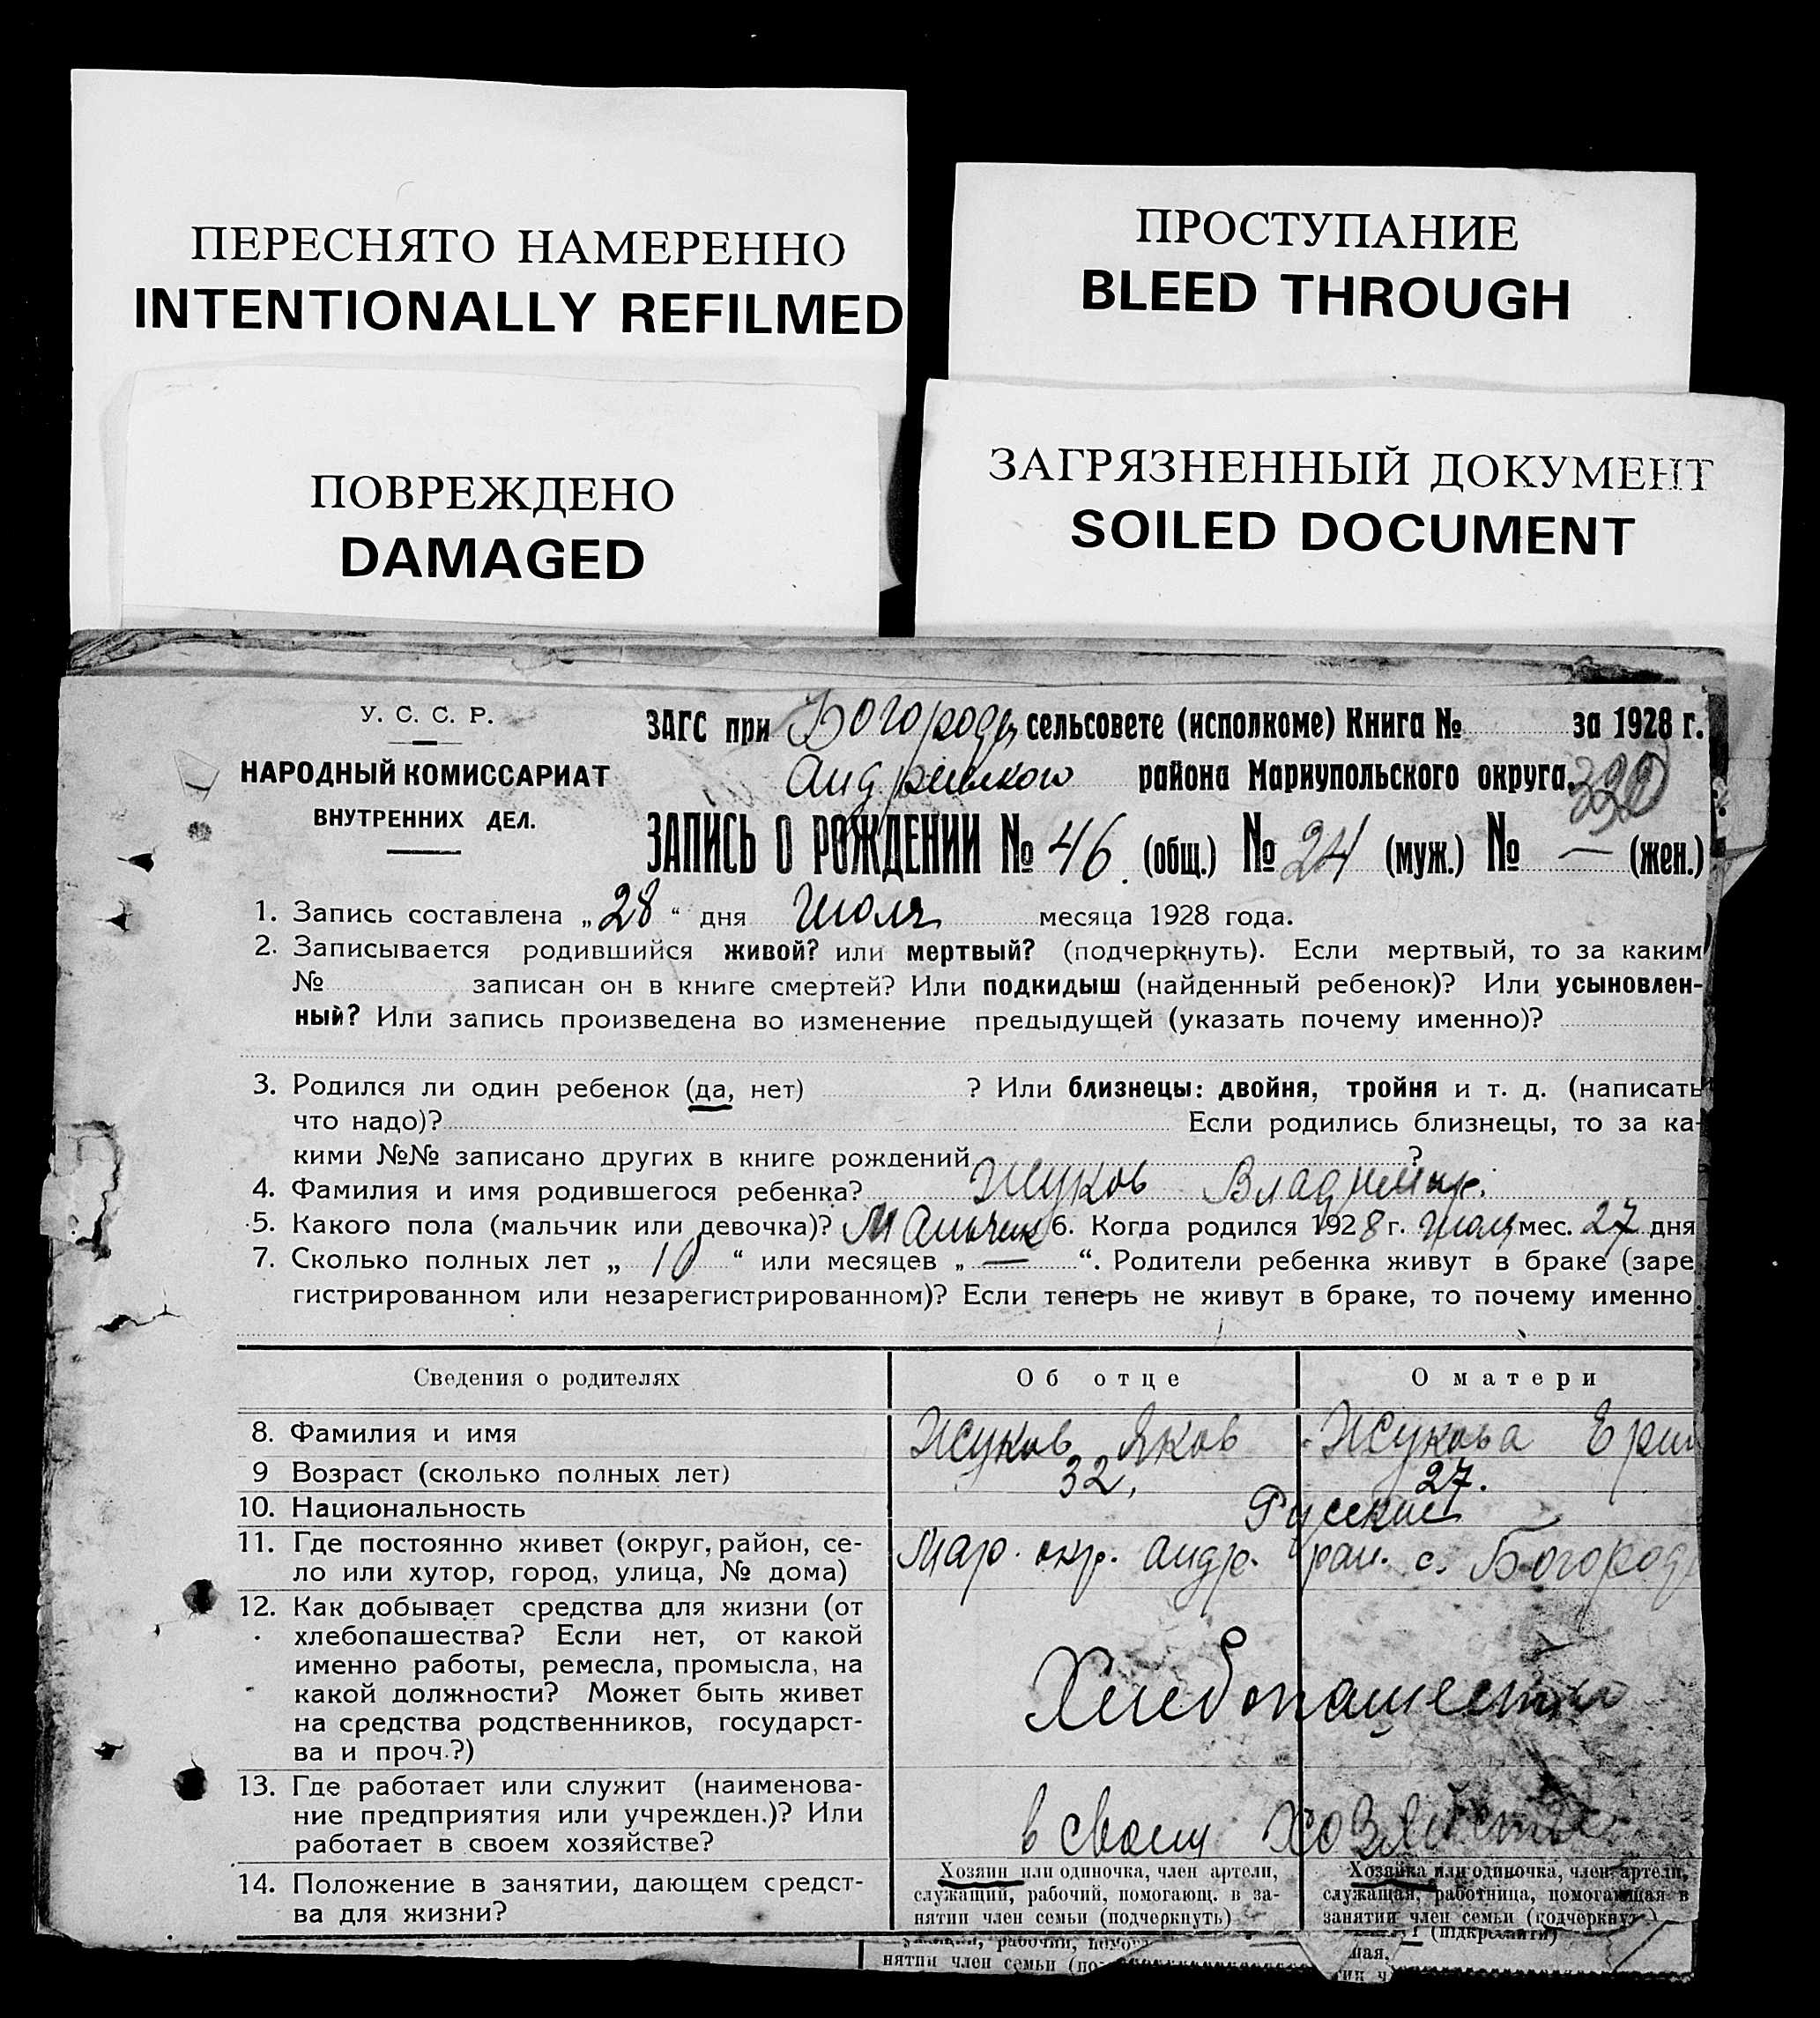 ПЕРЕСНЯТО НАМЕРЕННО
INTENTIONALLY REFILMED
ПРОСТУПАНИЕ
BLEED THROUGH
ПОВРЕЖДЕНО
DAMAGED
ЗАГРЯЗНЕННЫЙ ДОКУМЕНТ
SOILED DOCUMENT
У. С. С. Р.
НАРОДНЫЙ КОМИССАРИАТ
ВНУТРЕННИХ ДЕЛ.
ЗАГС при Богородц сельсовете (исполкоме) Книга № за 1928 г.
района Мариупольского округа.
ЗАПИСЬ О РОЖДЕНИИ № 46 (общ.) № 24 (муж.) № — (жен.)
1. Запись составлена „28“ дня Июля месяца 1928 года.
2. Записывается родившийся живой? или мертвый? (подчеркнуть). Если мертвый, то за каким
№ записан он в книге смертей? Или подкидыш (найденный ребенок)? Или усыновлен-
ный? Или запись произведена во изменение предыдущей (указать почему именно)?
3. Родился ли один ребенок (да, нет) ? Или близнецы: двойня, тройня и т. д. (написать
что надо)? Если родились близнецы, то за ка-
кими №№ записано других в книге рождений ?
4. Фамилия и имя родившегося ребенка? Жуков Владимир.
5. Какого пола (мальчик или девочка)? Мальчик 6. Когда родился 1928 г. Июля мес. 27 дня
7. Сколько полных лет „ 10 “ или месяцев „ — “. Родители ребенка живут в браке (заре
гистрированном или незарегистрированном)? Если теперь не живут в браке, то почему именно
Сведения о родителях
Об отце
О матери
8. Фамилия и имя
Жуков Яков
Жукова
9 Возраст (сколько полных лет)
32,
27.
10. Национальность
Русские
11. Где постоянно живет (округ, район, се-
ло или хутор, город, улица, № дома)
Мар. окр. андр. рай. с. Богородц
12. Как добывает средства для жизни (от
хлебопашества? Если нет, от какой
именно работы, ремесла, промысла, на
какой должности? Может быть живет
на средства родственников, государст-
ва и проч.?)
Хлебопашество
13. Где работает или служит (наименова-
ние предприятия или учрежден.)? Или
работает в своем хозяйстве?
в своем хозяйстве
14. Положение в занятии, дающем средст-
ва для жизни?
Хозяин или одиночка, член артели,
служащий, рабочий, помогающ. в за-
нятии член семьи (подчеркнуть)
Хозяйка или одиночка, член артели,
служащая, работница, помогающая в
занятии член семьи (подчеркнут
рабочий,
нятии член семьи
(підкреслити)